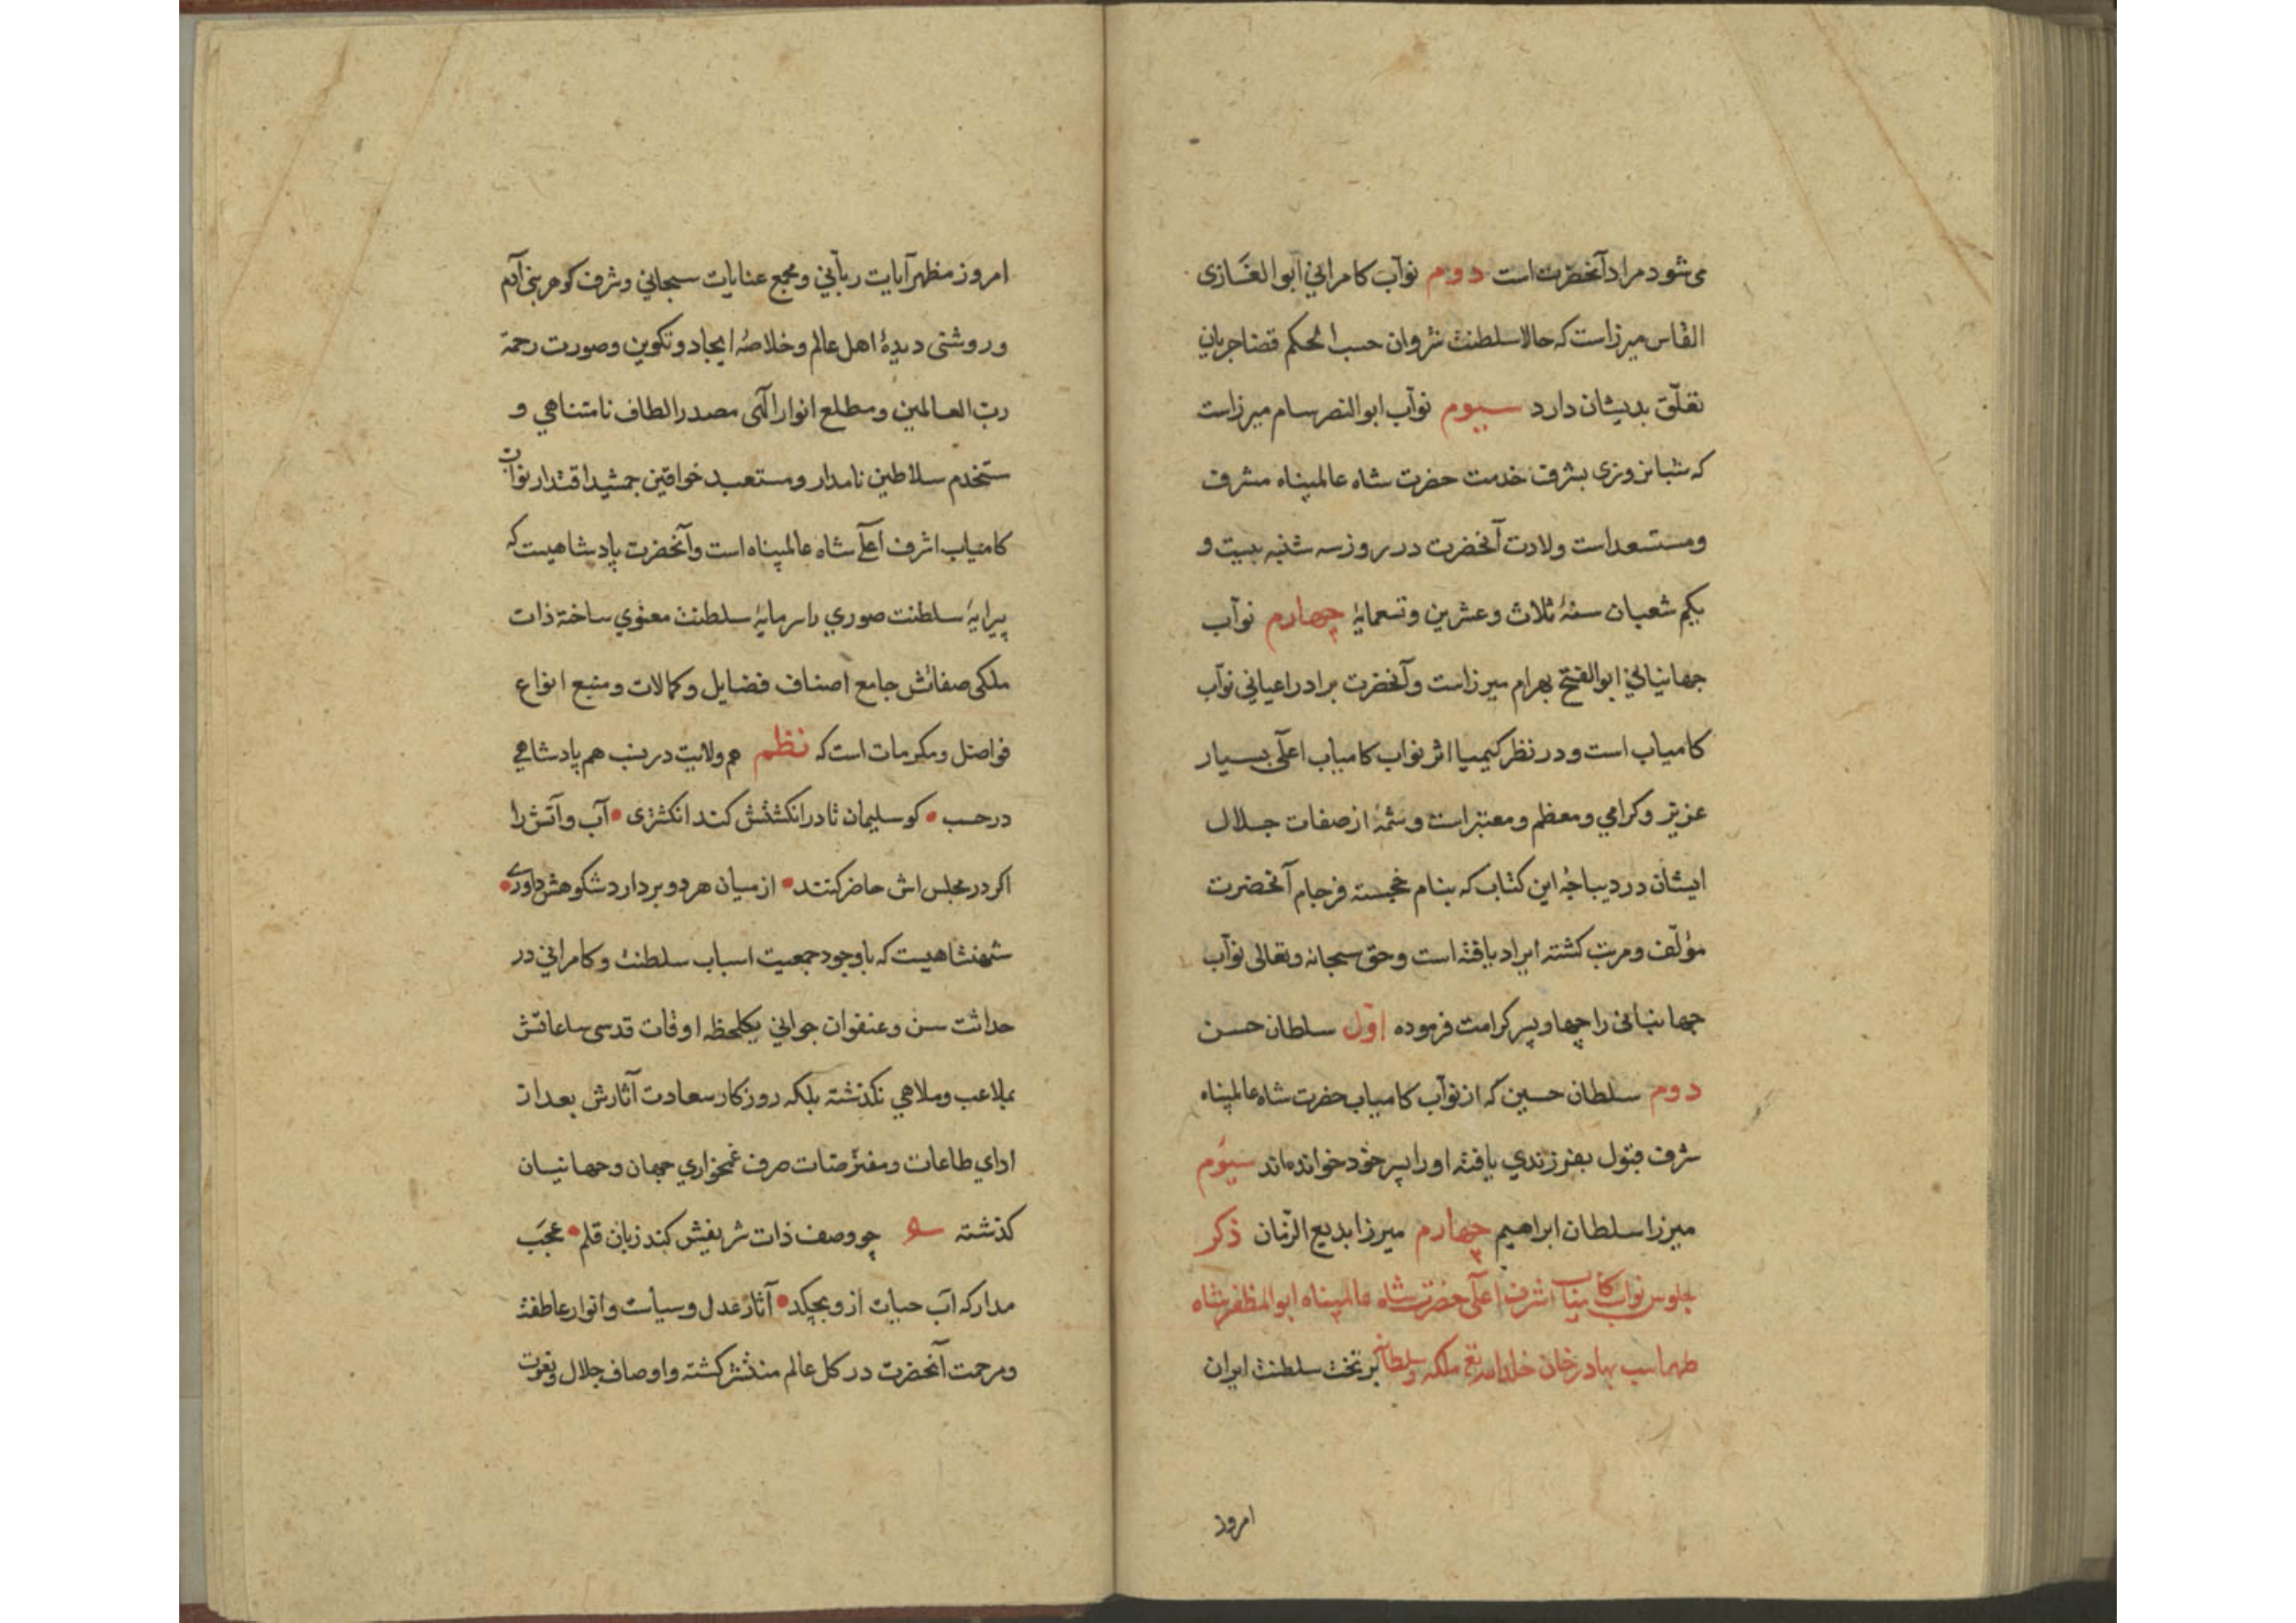 می شود مراد آنحضرت است دوم نوآب کامرانی ابوالغازی
القاس میرزاست که حالا سلطنت شروان حسب الحکم قضا جریان
تعلّق بدیشان دارد سیوم نوآب ابوالنصر سام میرزاست
که شبانروزی بشرف خدمت حضرت شاه عالمپناه مشرف
ومستسعد است ولادت آنحضرت در روز سه شنبه بیست و
یکم شعبان سنهٔ ثلاث وعشرین وتسعمایهٔ چهارم نوآب
جهانبانی ابوالفتح بهرام میرزاست وآنحضرت برادر اعیانی نوآب
کامیاب است و در نظر کیمیا اثر نواب کامیاب اعلی بسیار
عزیز وکرامی ومعظم ومعتبر است وشمهٔ از صفات جلال
ایشان در دیباجهٔ این کتاب که بنام خجسته فرجام آنحضرت
مؤلّف ومرتب کشته ایراد یافته است وحق سبحانه وتعالی نوآب
جهانبانی را چهار پسر کرامت فرموده اوّل سلطان حسن
دوم سلطان حسین که از نوآب کامیاب حضرت شاه عالمپناه
شرف قبول بفرزندی یافته اورا پسر خود خوانده‌اند سیوم
میرزا سلطان ابراهیم چهارم میرزا بدیع الزّمان ذکر
جلوس نواب کامیاب اشرف اعلی حضرت شاه عالمپناه ابوالمظفر شاه
طهماسب بهادر خان خلد الله تع ملکه وسلطانه بر تخت سلطنت ایران
امروز
امروز مظهر آیات ربآنی ومجمع عنایات سبحانی وشرف کوهر بنی آدم
وروشنی دیدهٔ اهل عالم وخلاصهٔ ایجاد وتکوین وصورت رحمة
ربّ العالمین ومطلع انوار الهی مصدر الطاف نامتناهی و
مستخدم سلاطین نامدار ومستعبد خواقین جمشید اقتدار نوآب
کامیاب اشرف اعلی شاه عالمپناه است وآنحضرت پادشاهیست که
پیرایهٔ سلطنت صوری را سرمایهٔ سلطنت معنوی ساخته ذات
ملکی صفاتش جامع اصناف فضایل وکمالات ومنبع انواع
فواضل ومکرمات است که نظم هم ولایت در نسب هم پادشاهی
در حسب • کو سلیمان تا در انکشتش کند انکشتری • آب وآتش را
اکر در مجلس اش حاضر کنند • از میان هر دو بردارد شکوهش داوری •
شهنشاهیست که با وجود جمعیت اسباب سلطنت وکامرانی در
حداثت سن وعنفوان جوانی یکلحظه اوقات قدسی ساعاتش
بملاعب وملاهی نکذشته بلکه روزکار سعادت آثارش بعد از
ادای طاعات ومفترضات صرف غمخواری جهان وجهانیان
کذشته چو وصف ذات شریفش کند زبان قلم • عجب
مدار که آب حیات ازو بچکد • آثار عدل وسیاست وانوار عاطفت
ومرحمت آنحضرت در کل عالم منتشر کشته واوصاف جلال ونعوت